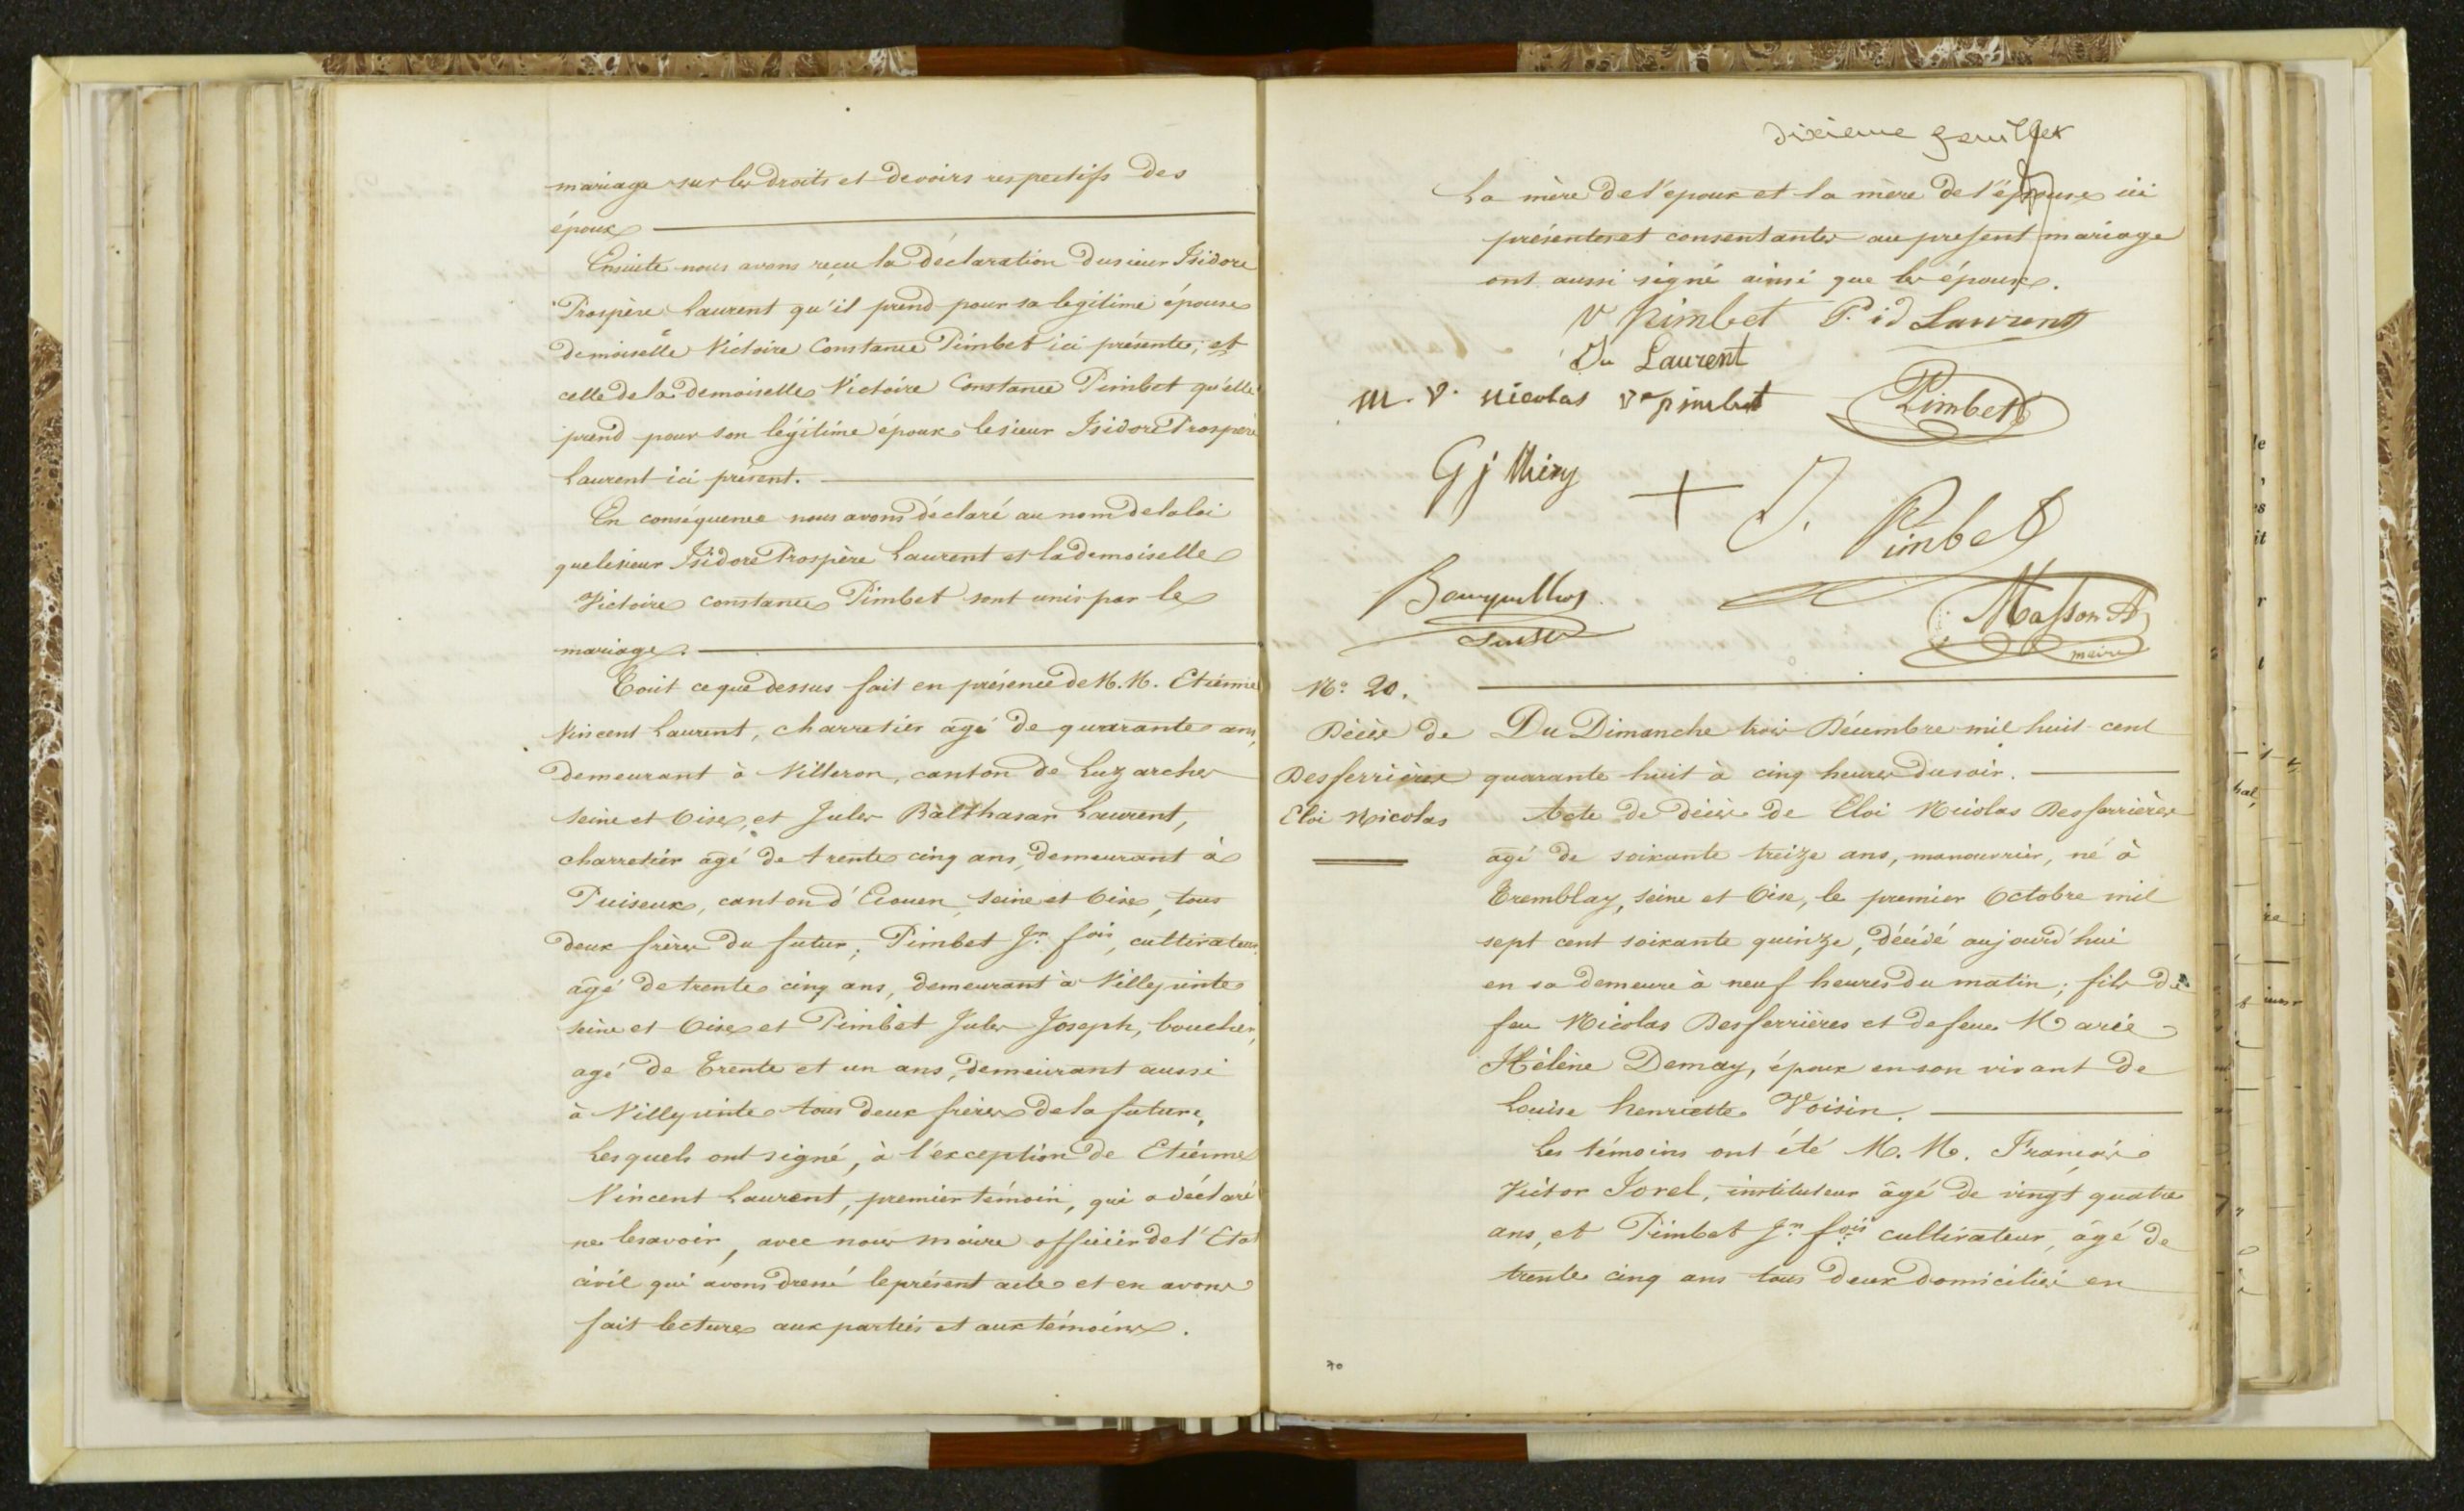 mariage sur les droits et devoirs respectifs des
époux
Ensuite nous avons reçu la déclaration du sieur Isidore
Prospère Laurent qu'il prend pour sa legitime épouse
demoiselle Victoire Constance Pimbet ici présente; et
celle de la demoiselle Victoire Constance Pimbet qu'elle
prend pour son légitime époux le sieur Isidore Prospère
Laurent ici présent.
En conséquence nous avons déclaré au nom de la loi
que le sieur Isidore Prospère Laurent et la demoiselle
Victoire Constance Pimbet sont unis par le
mariage.
Tout ce que dessus fait en présence de M.M. Etienne
Vincent Laurent, charretier agé de quarante ans,
demeurant à Villeron, canton de Luzarches
Seine et Oise, et Jules Balthasar Laurent,
charretier agé de trente cinq ans, demeurant à
Puiseux, canton d'Ecouen, Seine et Oise, tous
deux frères du futur; Pimbet Jn fois, cultivateur
âgé de trente cinq ans, demeurant à Villepinte
Seine et Oise et Pimbet Jules Joseph, boucher,
agé de trente et un ans, demeurant aussi
à Villepinte tous deux frères de la future,
Lesquels ont signé, à l'exception de Etienne
Vincent Laurent, premier témoin, qui a déclaré
ne le savoir, avec nous maire officier de l'Etat
civil qui avons dressé le présent acte et en avons
fait lecture aux parties et aux témoins.
dixieme feuillet
La mère de l'epoux et la mère de l'épouse ici
présentes et consentantes au present mariage
ont aussi signé ainsi que les époux.
V Pimbet P. id Laurent
Laurent
M. V. Nicolas Ve pimbet Pimbet
G j thiery + J. Pimbet
Masson A
maire
No. 20.
Décès de
Desferrières
Eloi Nicolas
Du Dimanche trois Décembre mil huit cent
quarante huit à cinq heures du soir.
Acte de décès de Eloi Nicolas Desferrières
agé de soixante treize ans, manouvrier, né à
Tremblay, Seine et Oise, le premier Octobre mil
sept cent soixante quinze, décédé aujourd'hui
en sa demeure à neuf heures du matin; fils de
feu Nicolas Desferrières et de feue Marie
Hélène Demay, époux en son vivant de
Louise henriette Voisin.
Les témoins ont été M. M. François
Victor Jorel, instituteur âgé de vingt quatre
ans, et Pimbet Jn fois cultivateur, âgé de
trente cinq ans tous deux domiciliés en
70